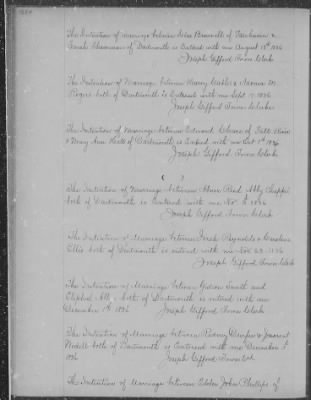 The Intention of marriage between Silas Brownell of Fairhaven &
Sarah Shearman of Dartmouth is Entered with me August 15th 1836
Joseph Gifford Town Clerk
The Intention of Marriage between Henry &
Rogers both of Dartmouth is Entered with me Sept 1836
Joseph Gifford Town Clerk
The Intention of Marriage between Edward of Fall River
& Mary Ann of Dartmouth is Entered with me Oct 1st 1836
Joseph Gifford Town Clerk
( )
The Intention of Marriage between Abner Reed Abby
both of Dartmouth is Entered with me Nov 1836
Joseph Gifford Town Clerk
The Intention of Marriage between Reynolds & Caroline
Ellis both of Dartmouth is entered with me Nov 23 1836
Joseph Gifford Town Clerk
The Intention of Marriage between Gideon Smith and
both of Dartmouth is entered with me
December 1836 Joseph Gifford Town Clerk
The Intention of Marriage between Rodney &
both of Dartmouth is Entered with me December
1836 Joseph Gifford Town Clk
The Intention of Marriage between Elder John Phillips of